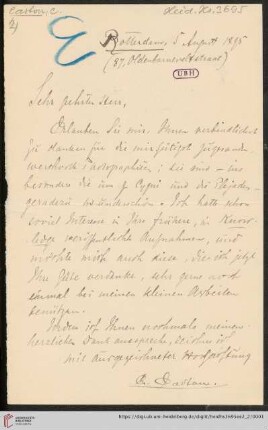 Easton, C.
2)
Heid. Hs. 3695
E
Rotterdam, 5 August 1895
(87, Oldenbarneveltstraat)
UBH
Sehr geehrter Herr,
Erlauben Sie mir, Ihnen verbindlichst
zu danken für die mir gütigst zugesandten
wertvollen Photographien; sie sind – ins
besondere die um γ Cygni und die Plejaden-
Ich hatte schon
soviel Interesse in Ihre frühere, in Know-
ledge veröffentlichte Aufnahmen, und
möchte mich auch diese, die ich jetzt
Ihrer Güte verdanke, sehr gerne noch
einmal bei meinen kleinen Arbeiten
benützen.
Indem ich Ihnen nochmals meinen
herzlichen Dank ausspreche, zeichne ich
mit ausgezeichneter Hochachtung
C. Easton.
UNIVERSITÄTS-
BIBLIOTHEK
HEIDELBERG